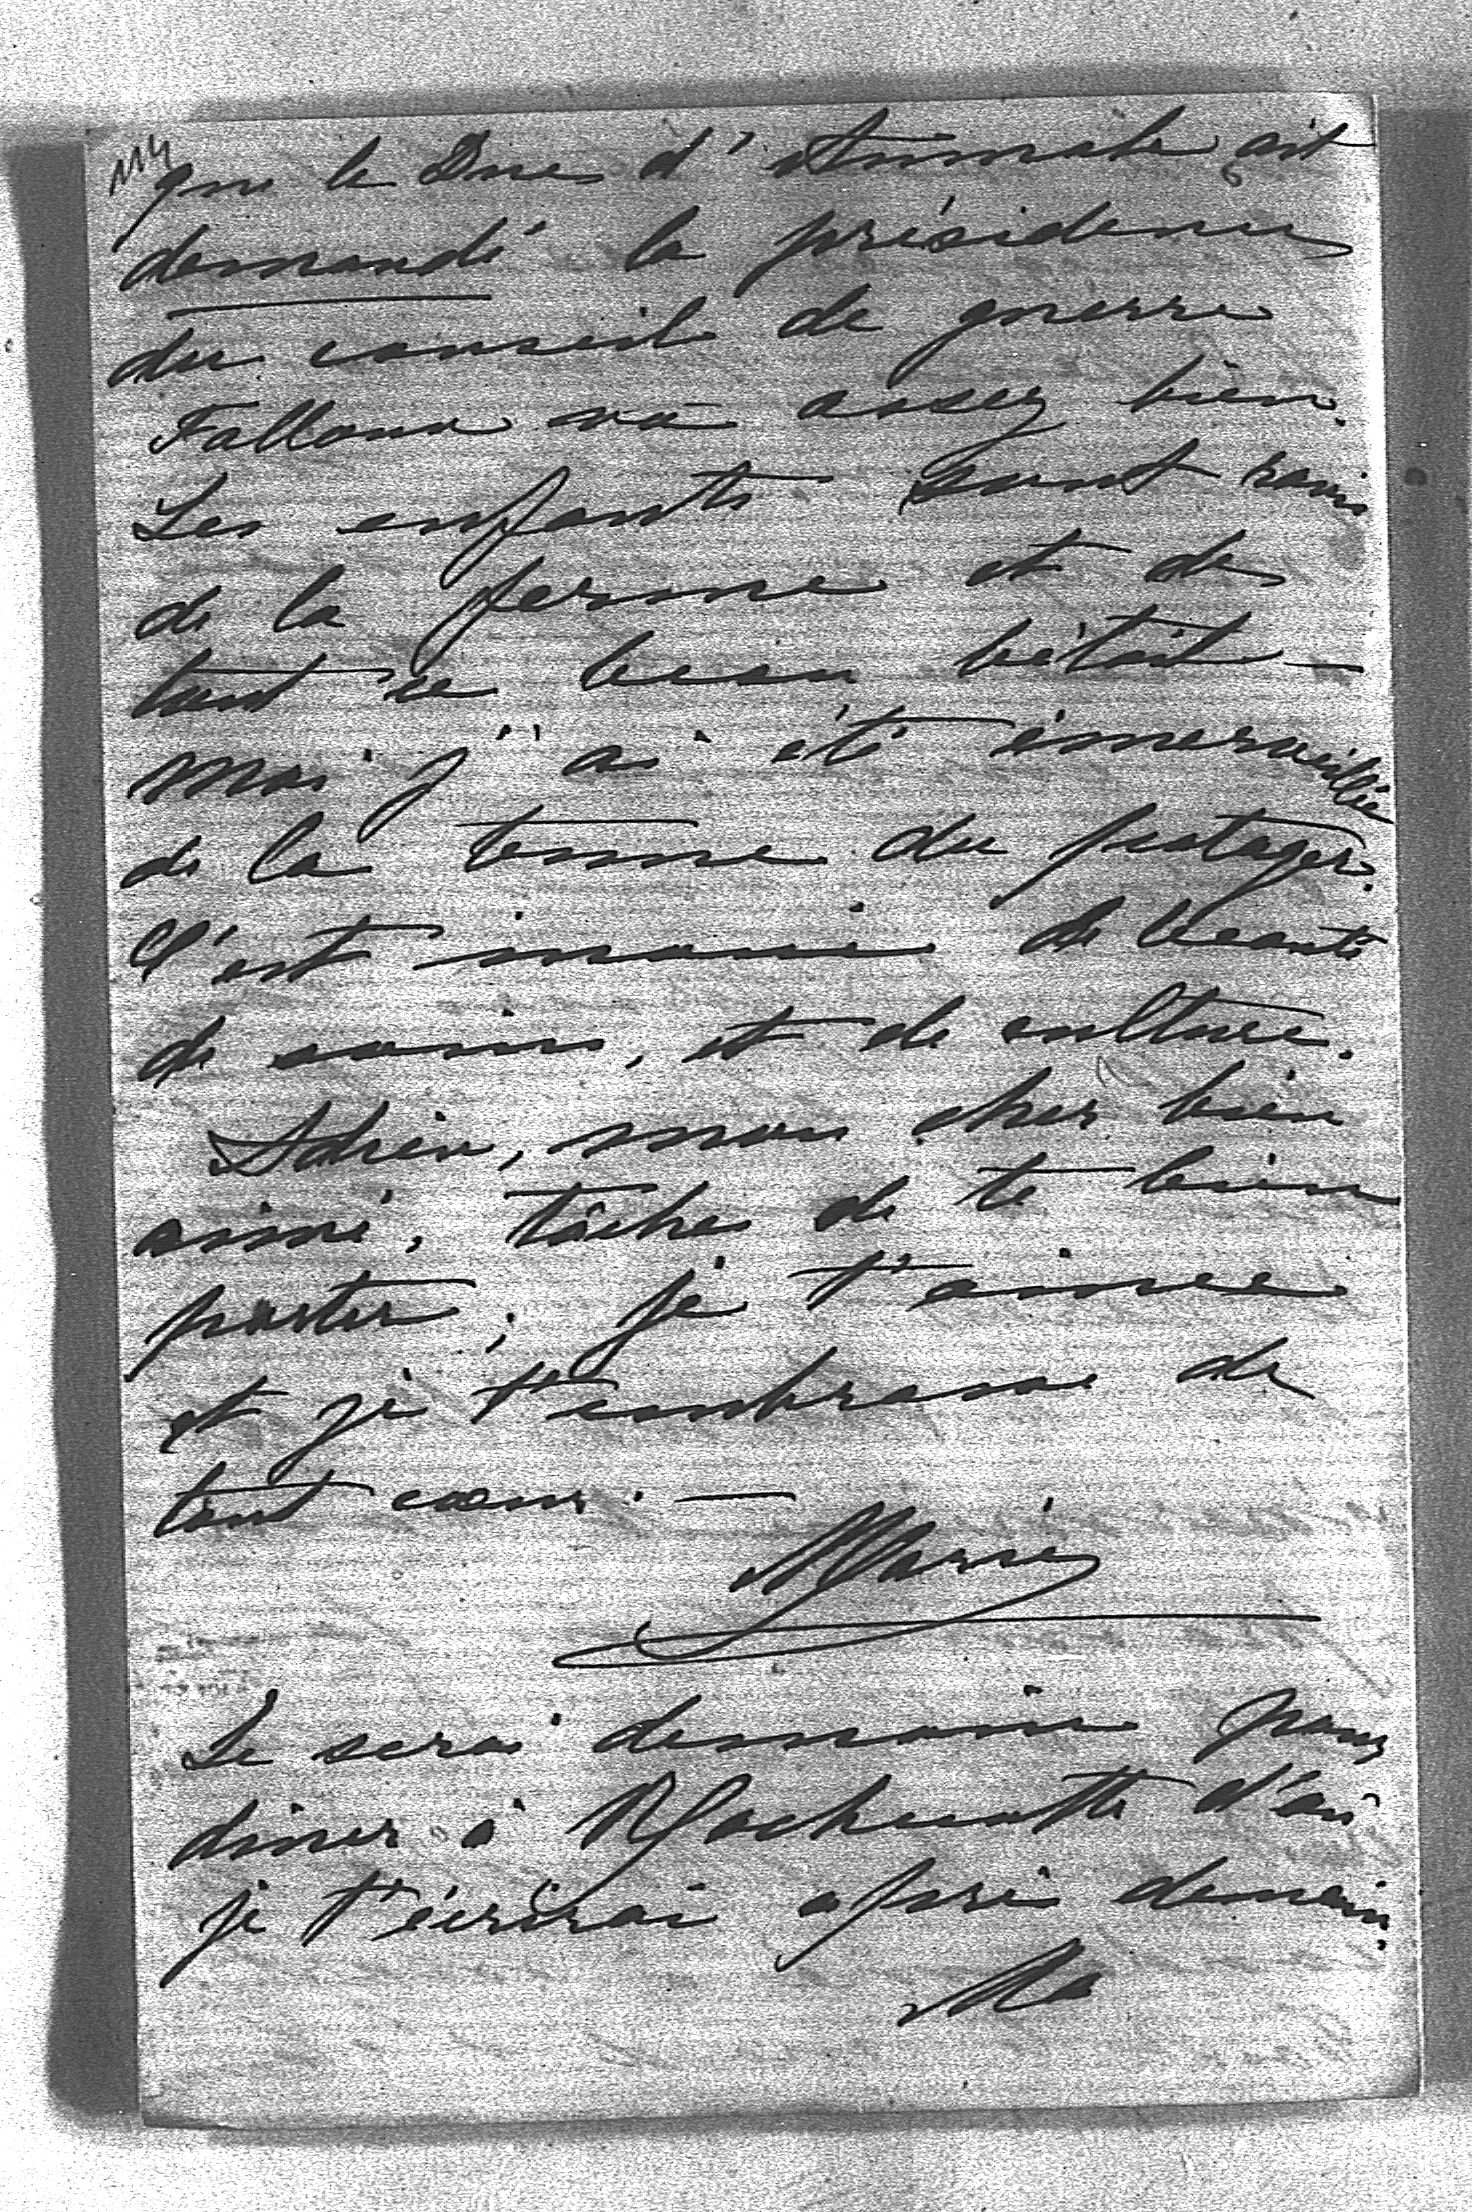 114
que le Duc d'Aumale ait
demandé la présidence
du conseil de guerre
Falloux va assez bien.
Les enfants sont ravis
de la ferme et de
tout ce beau bétail –
moi j'ai été émerveillée
de la tenue du potager.
C'est inouï de beauté
de soins, et de culture.
Adrien, mon cher bien
aimé, tâche de te bien
porter ; je t'aime
et je t'embrasse de
tout cœur. —
Marie
Je serai demain pour
diner à Rochecotte d'où
je t'écrirai après demain.
M